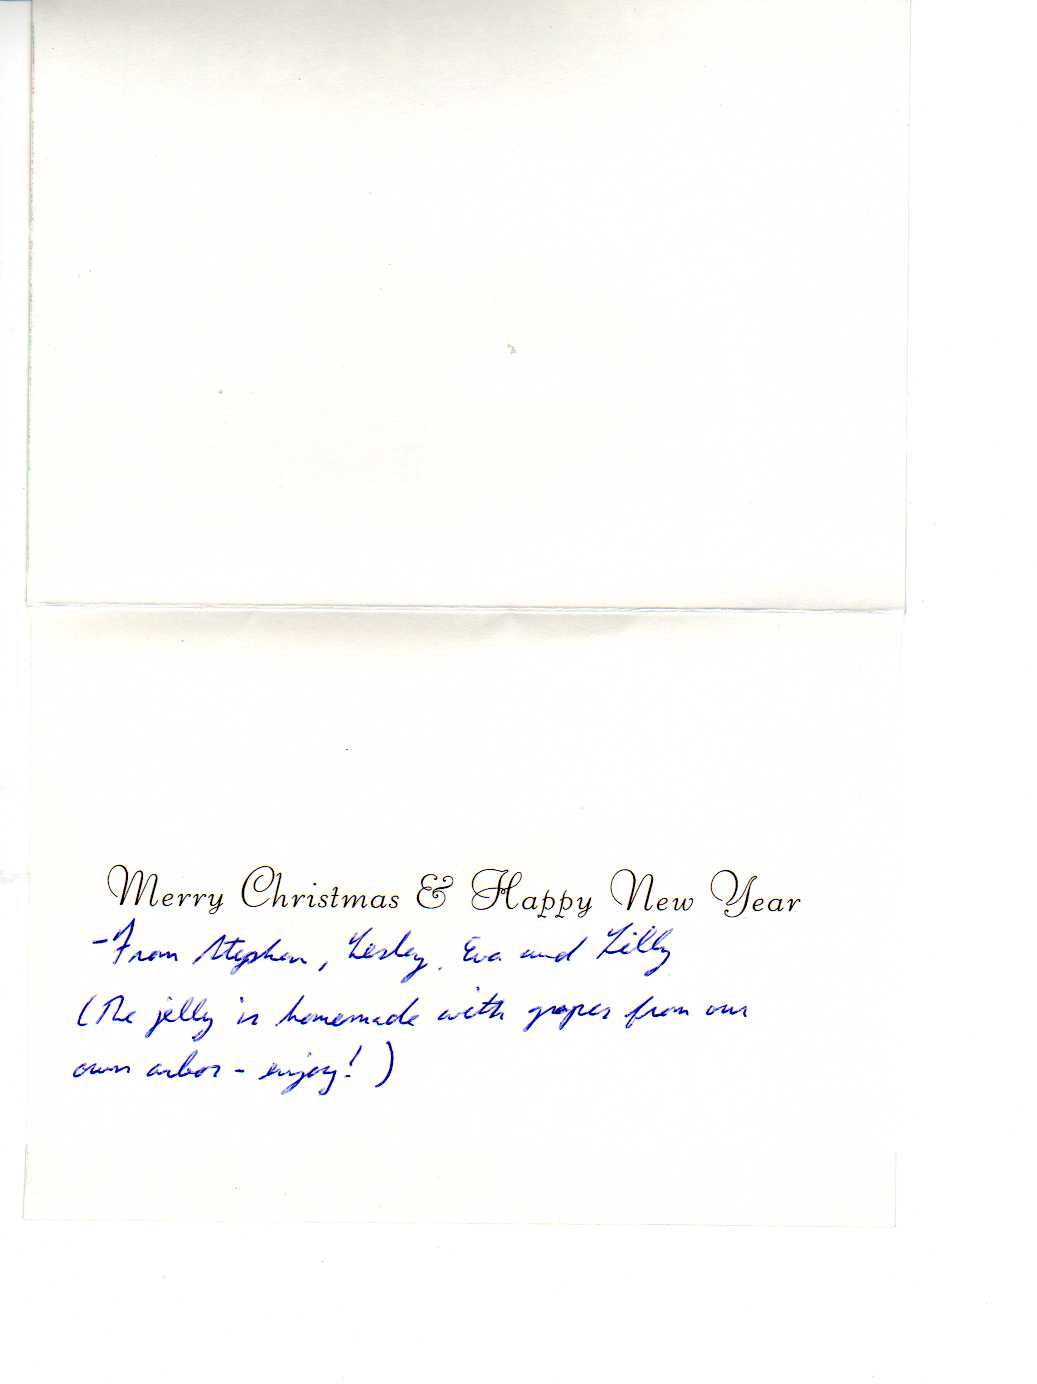 Merry Christmas & Happy New Year
- From Stephen, Lesley, Eva and Lilly
(The jelly is homemade with grapes from our
own arbor - enjoy!)